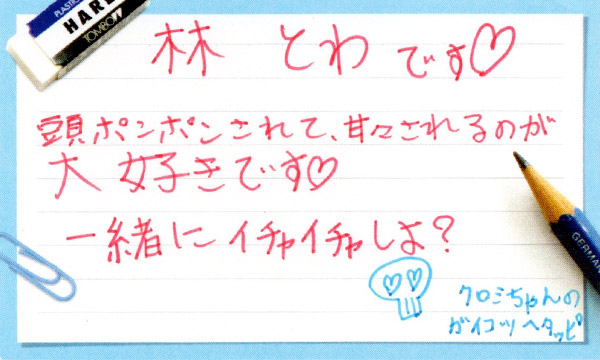 PLASTIC
HARD
TOMBOW
林 とわ です♡
頭ポンポンされて、甘々されるのが
大好きです♡
一緒に イチャイチャしよ?
GERMAN
クロミちゃんの
ガイコツ ヘタッピ